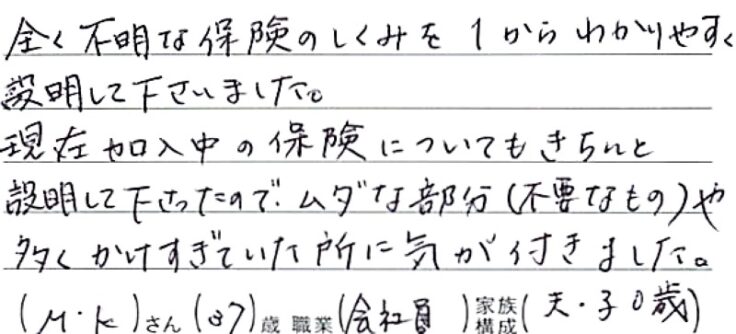 全く不明な保険のしくみを1からわかりやすく
説明して下さいました。
現在加入中の保険についてもきちんと
説明して下さったので、ムダな部分(不要なもの)や
多くかけすぎていた所に気が付きました。
(M・K)さん( 7)歳 職業(会社員 )家族構成(夫・子0歳)